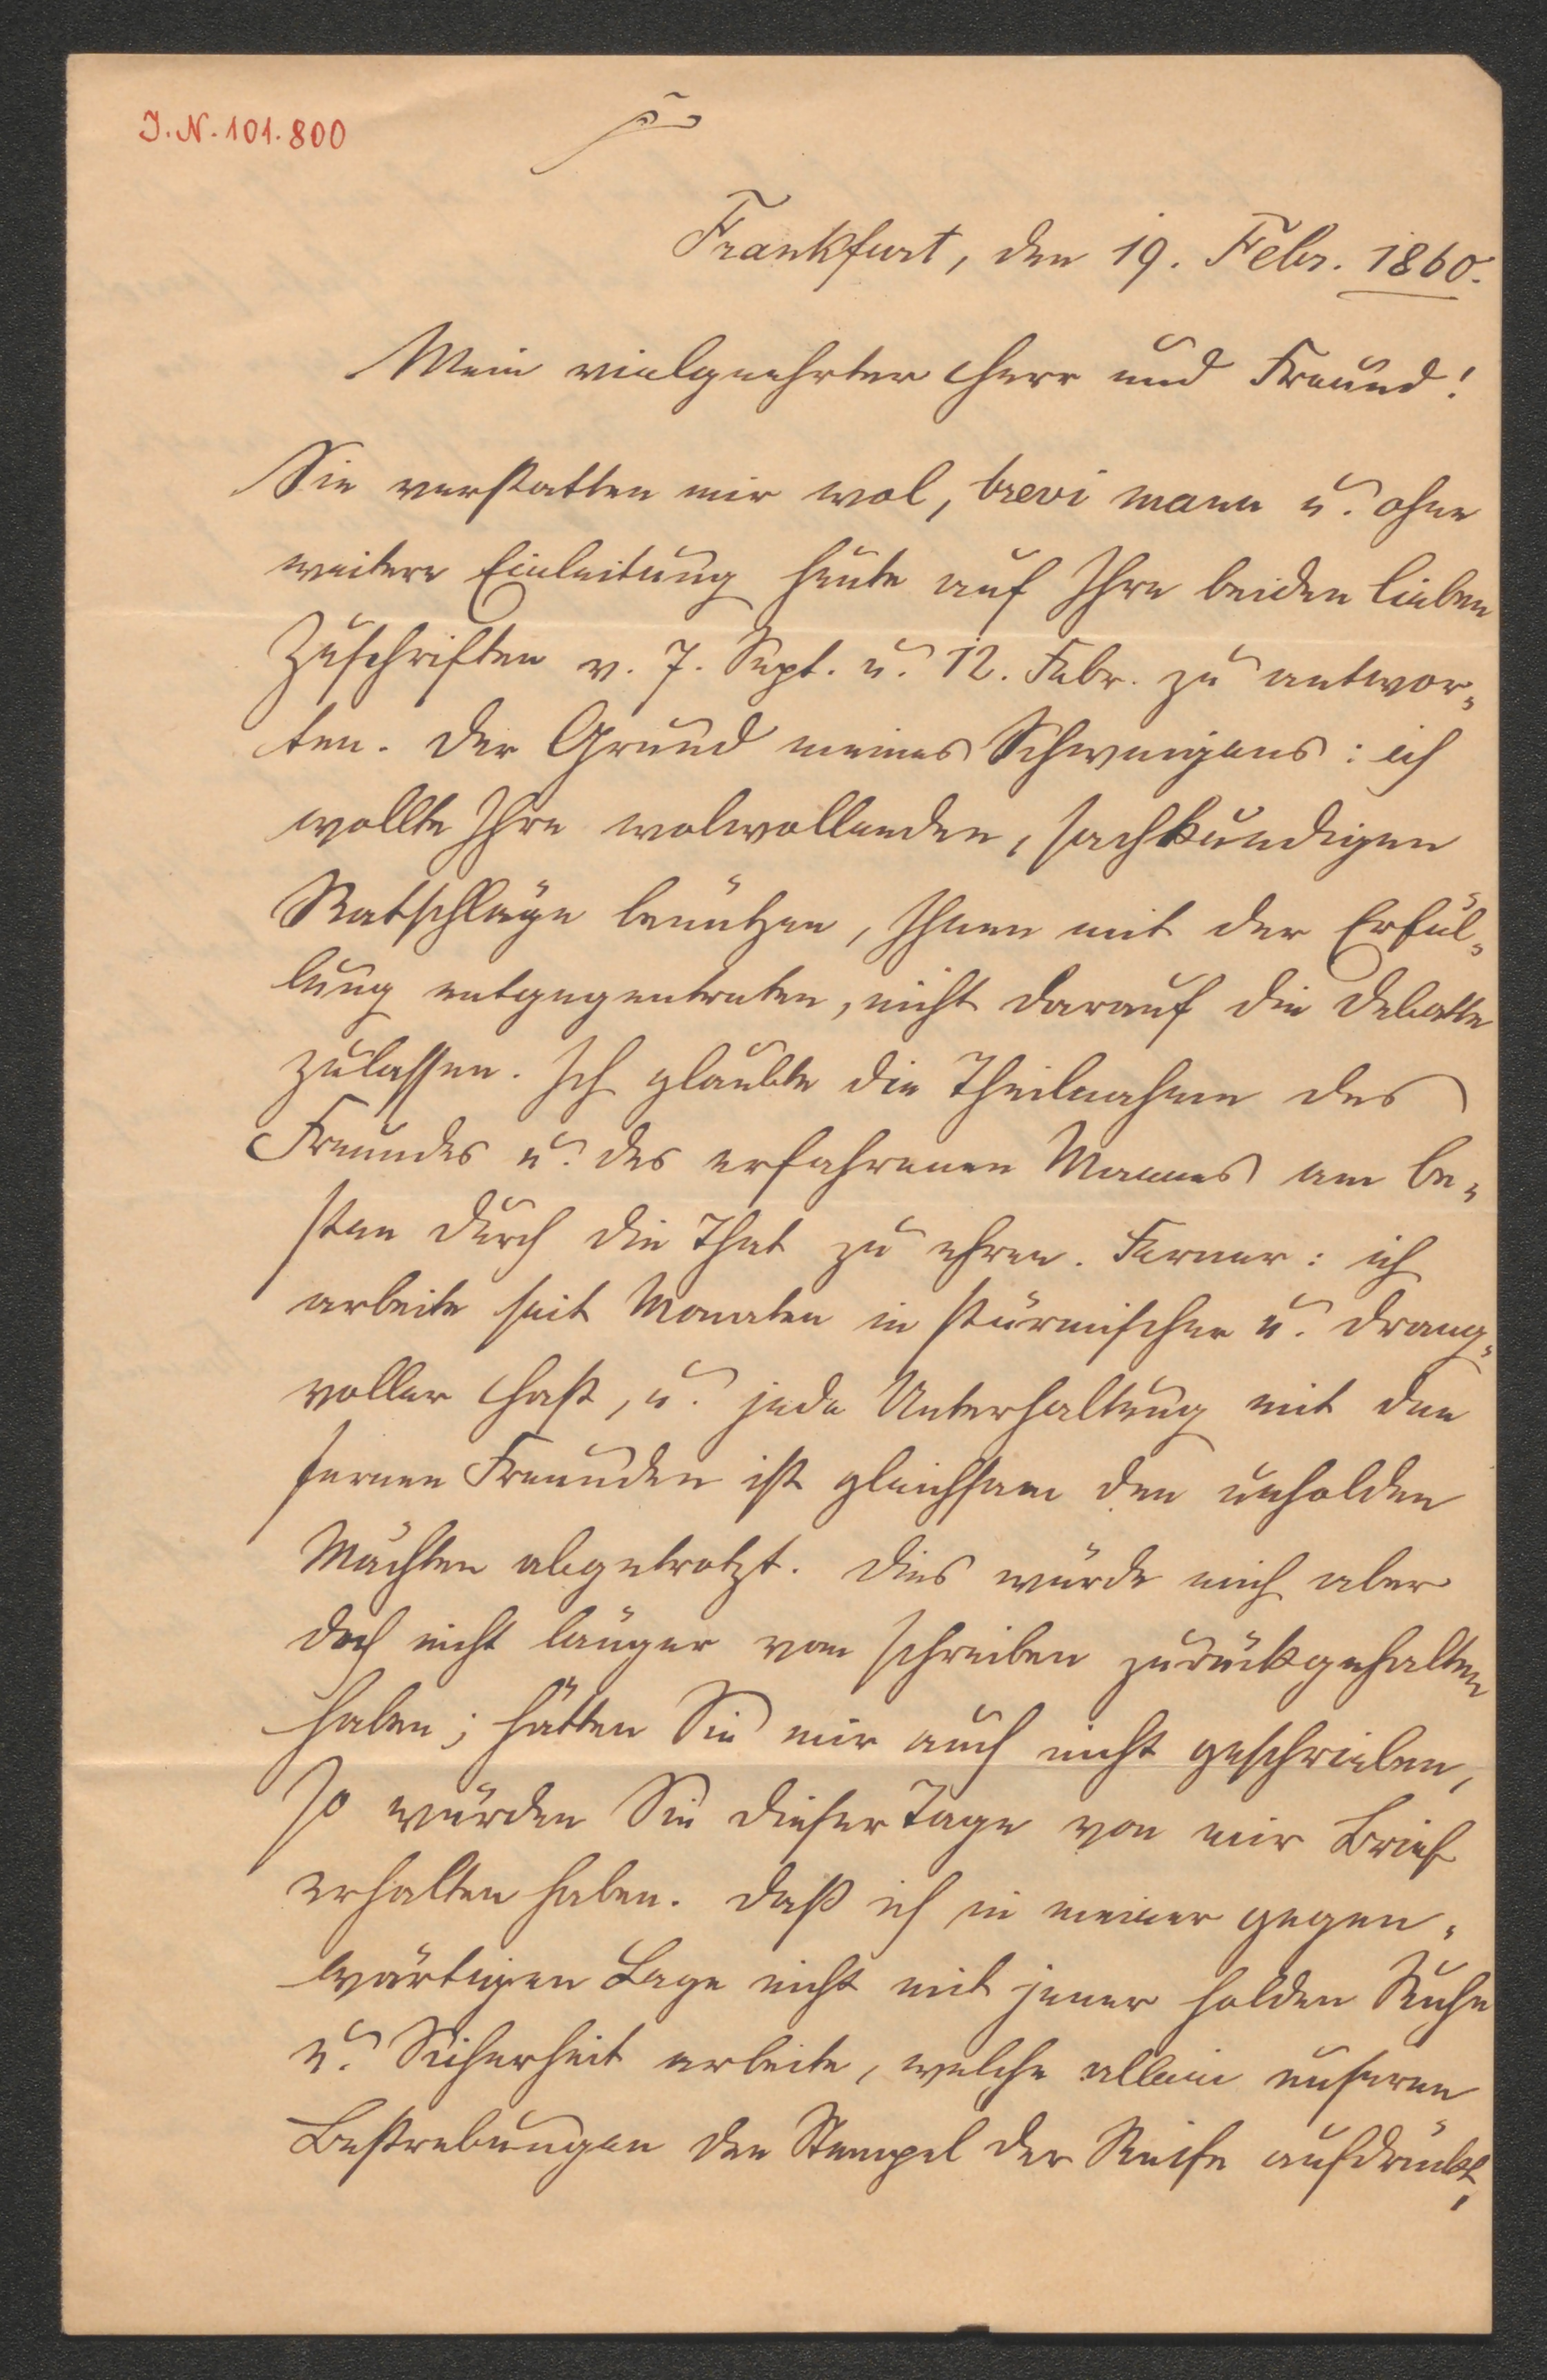 J.N. 101.800
Frankfurt, den 19. Febr. 1860.
Mein vielgeehrter Herr und Freund!
Sie verstatten mir wol, brevi manu u. ohne
weitere Einleitung heute auf Ihre beiden lieben
Zuschriften v. 7. Sept. u. 12. Febr. zu antwor-
ten. Der Grund meines Schweigens: ich
wollte Ihre wolwollenden, sachkundigen
Ratschläge benützen, Ihnen mit der Erfül-
lung entgegentreten, nicht darauf die Debatte
zulassen. Ich glaubte die Theilnahme des
Freundes u. des erfahrenen Mannes am be-
sten durch die That zu ehren. Ferner: ich
arbeite seit Monaten in stürmischer u. drang-
voller Hast, u. jede Unterhaltung mit den
fernen Freunden ist gleichsam den unholden
Mächten abgetrotzt. Dies würde mich aber
doch nicht länger vom schreiben zurückgehalten
haben; hätten Sie mir auch nicht geschrieben,
so würden Sie dieser Tage von mir Brief
erhalten haben. Daß ich in meiner gegen-
wärtigen Lage nicht mit jener holden Ruhe
u. Sicherheit arbeite, welche allein unseren
Bestrebungen den Stempel der Reife aufdrückt,